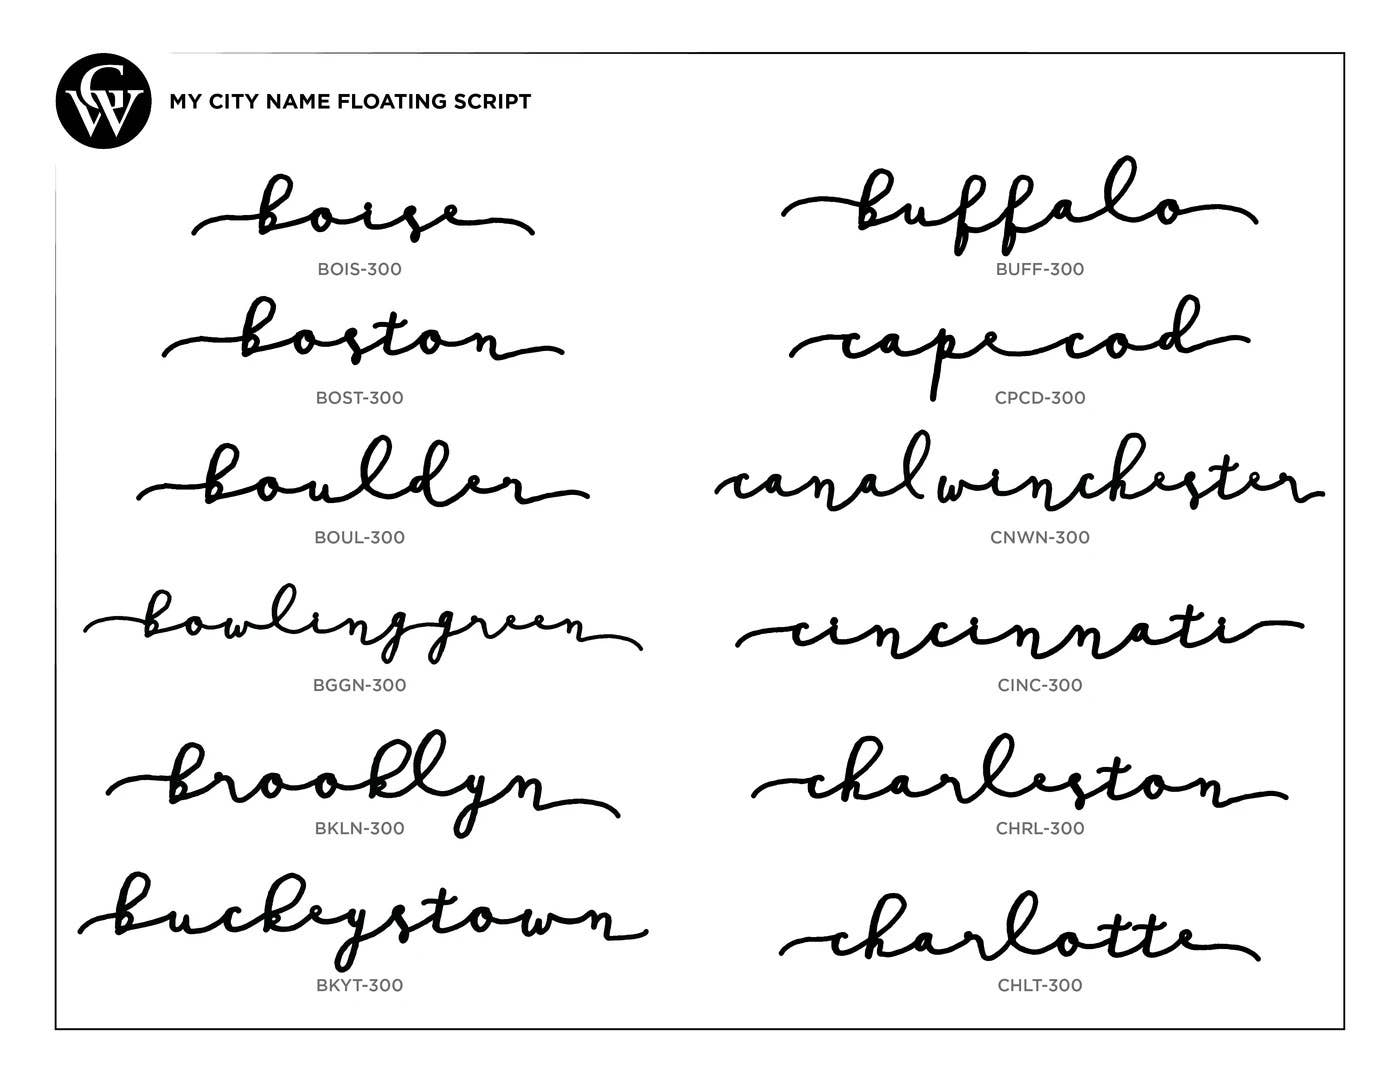 CW
MY CITY NAME FLOATING SCRIPT
boise
BOIS-300
boston
BOST-300
boulder
BOUL-300
bowling green
BGGN-300
brooklyn
BKLN-300
buckeystown
BKYT-300
buffalo
BUFF-300
cape cod
CPCD-300
canal winchester
CNWN-300
cincinnati
CINC-300
charleston
CHRL-300
charlotte
CHLT-300